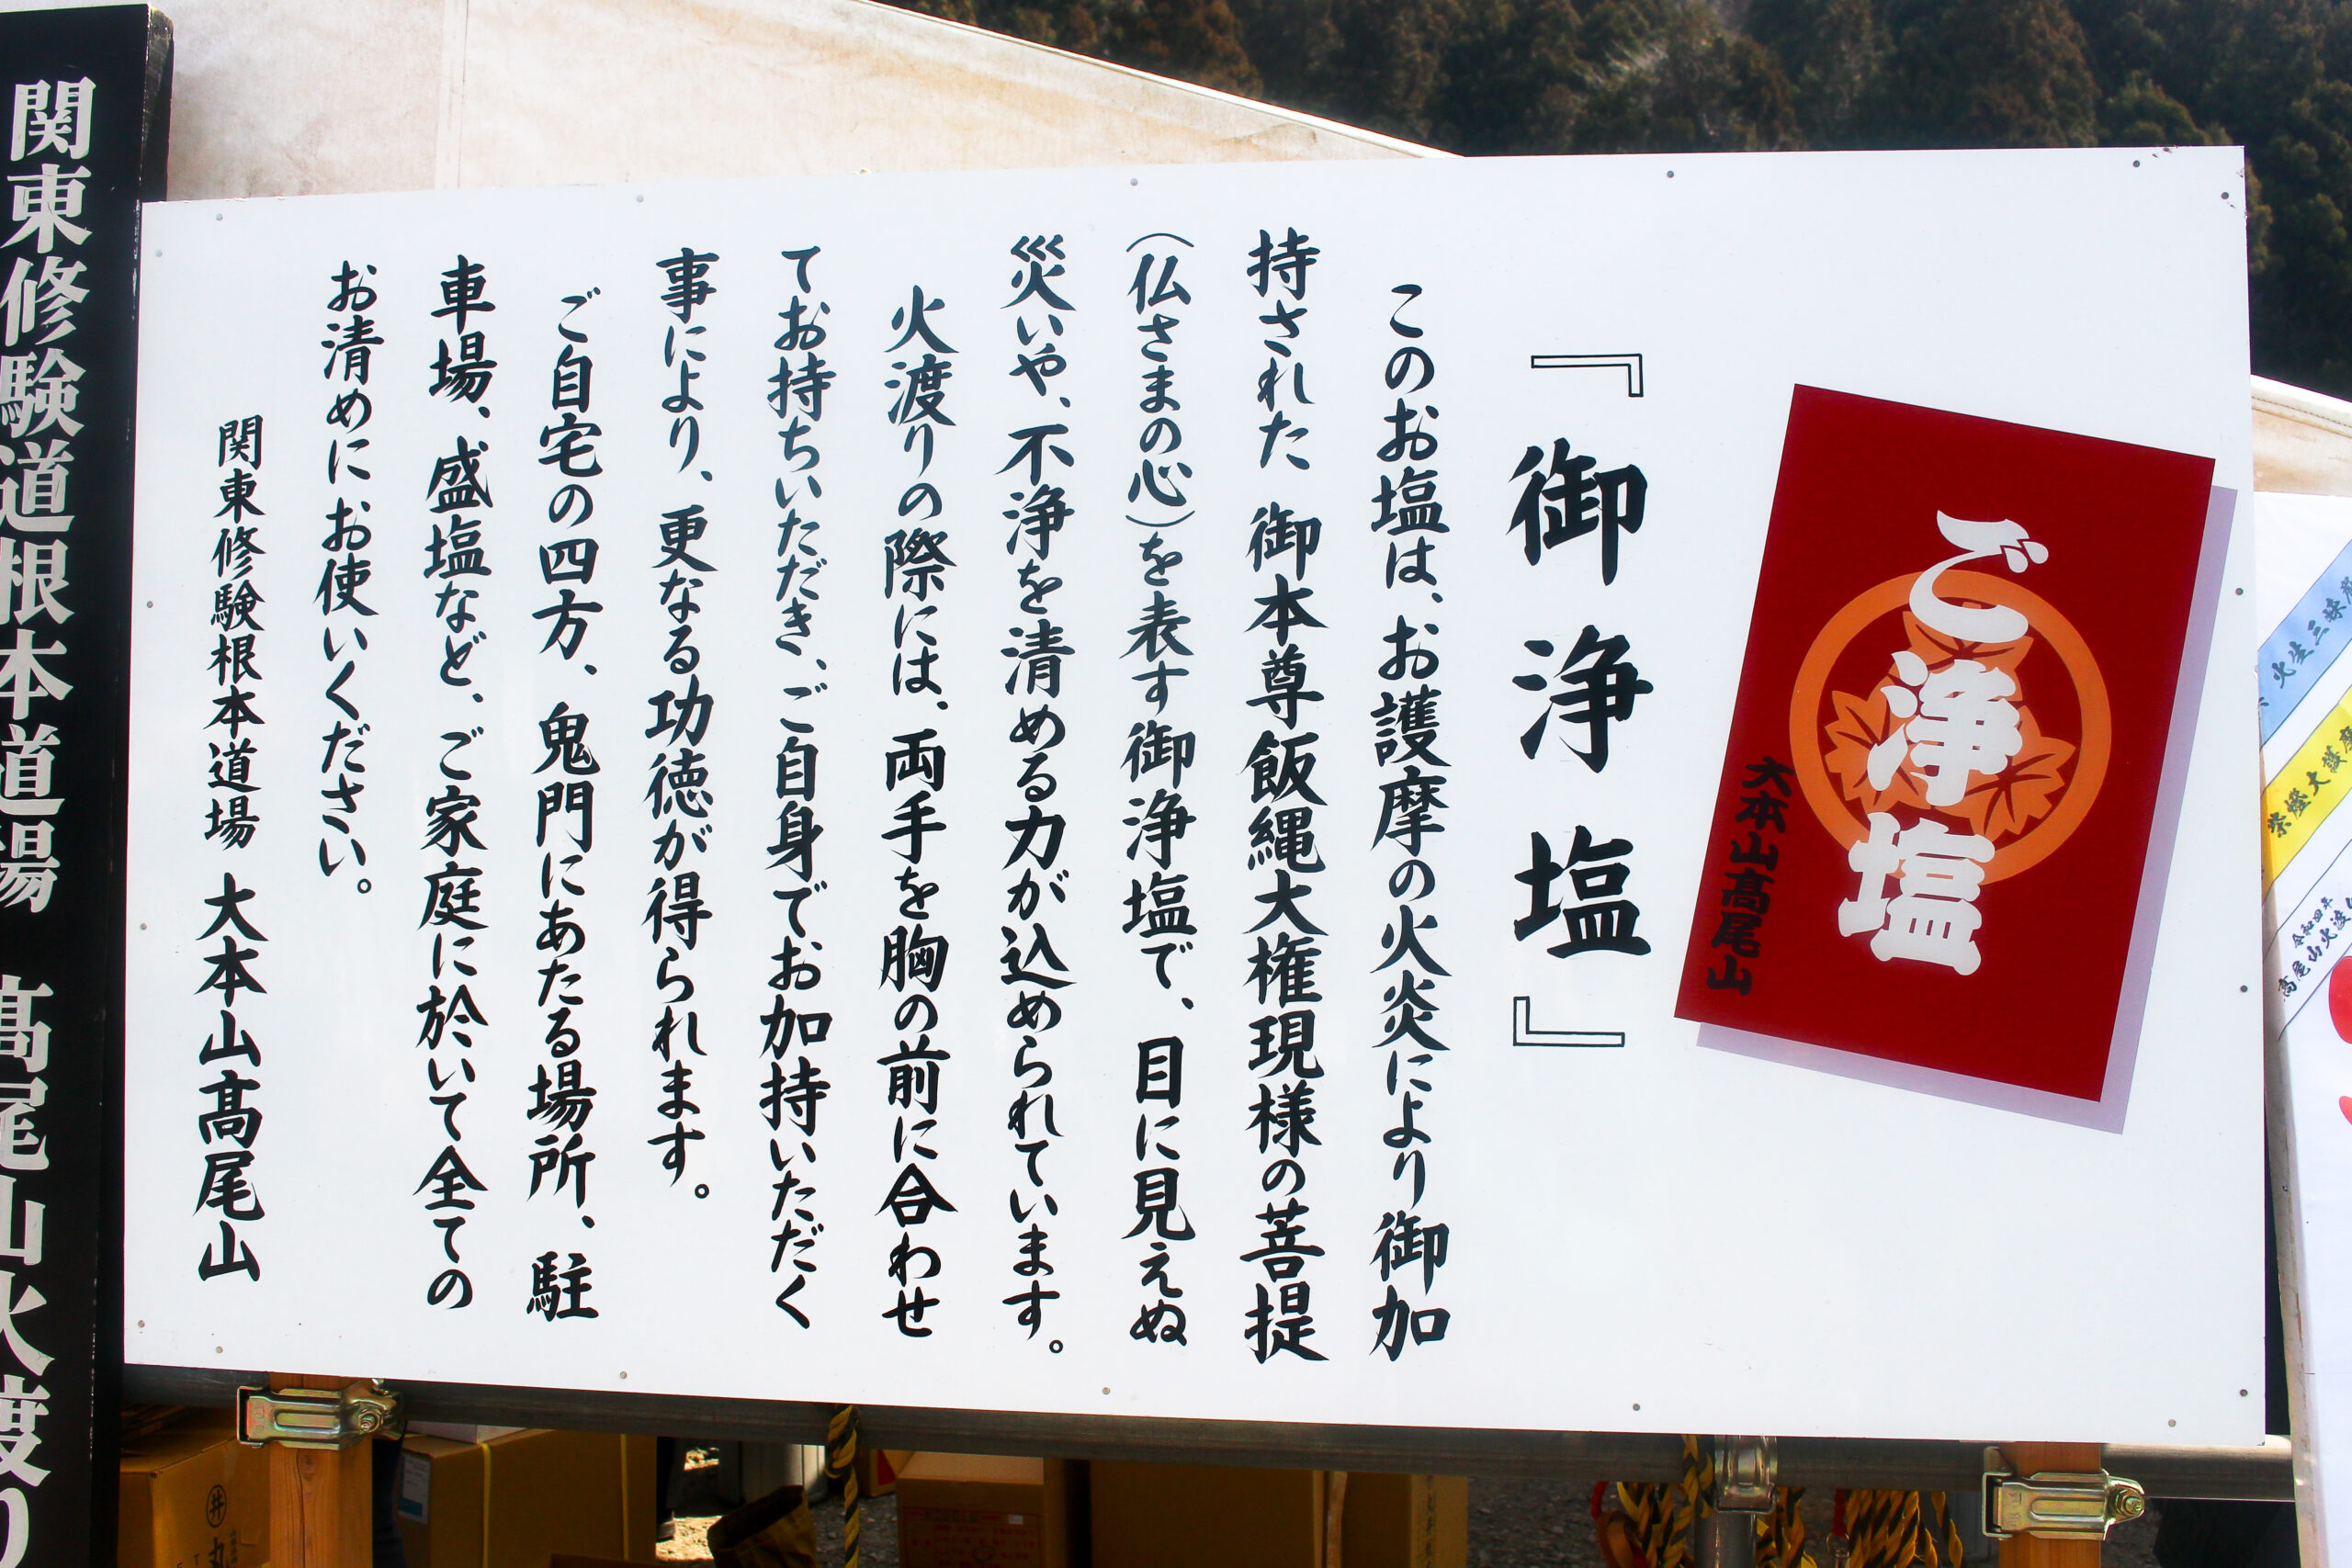 ご浄塩
大本山髙尾山
『御浄塩』
このお塩は、お護摩の火炎により御加
持された 御本尊飯縄大権現様の菩提
（仏さまの心）を表す御浄塩で、目に見えぬ
災いや、不浄を清める力が込められています。
火渡りの際には、両手を胸の前に合わせ
てお持ちいただき、ご自身でお加持いただく
事により、更なる功徳が得られます。
ご自宅の四方、鬼門にあたる場所、駐
車場、盛塩など、ご家庭に於いて全ての
お清めにお使いください。
関東修験根本道場 大本山髙尾山
関東修験道根本道場 髙尾山火渡り
令和四年
髙尾山火渡